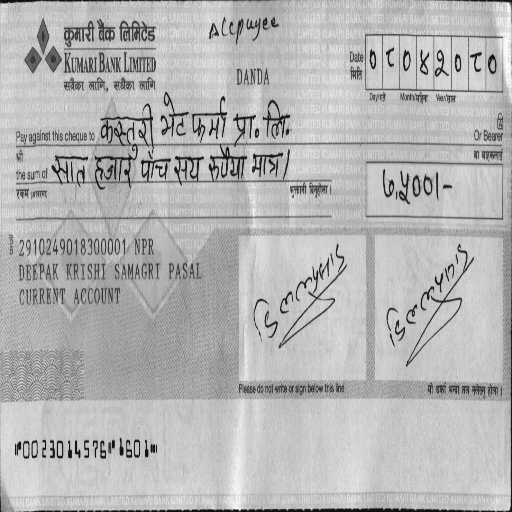 कुमारी बैंक लिमिटेड
KUMARI BANK LIMITED
सबैका लागि, सधैंका लागि
A/c payee
DANDA
Date मिति ०८०४२०८०
Day/गते Month/महिना Year/साल
Pay against this cheque to कस्तुरी भेट फर्मा प्रा. लि. Or Bearer
श्री वा वाहकलाई
the sum of सात हजार पाँच सय रुपैया मात्र।
रकम (अक्षरमा) भुक्तानी दिनुहोला।
७,५००।-
2910249018300001 NPR
DEEPAK KRISHI SAMAGRI PASAL
CURRENT ACCOUNT
Please do not write or sign below this line
यो धर्का भन्दा तल नलेख्नु होला।
⑈0023014576⑈1601⑈